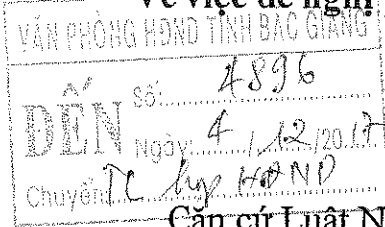 Về việc đề nghị
VĂN PHÒNG HĐND TỈNH BẮC GIANG
ĐẾN Số: 4896
Ngày: 4 / 12 /2017
Chuyển: TL họp HĐND
Căn cứ Luật N